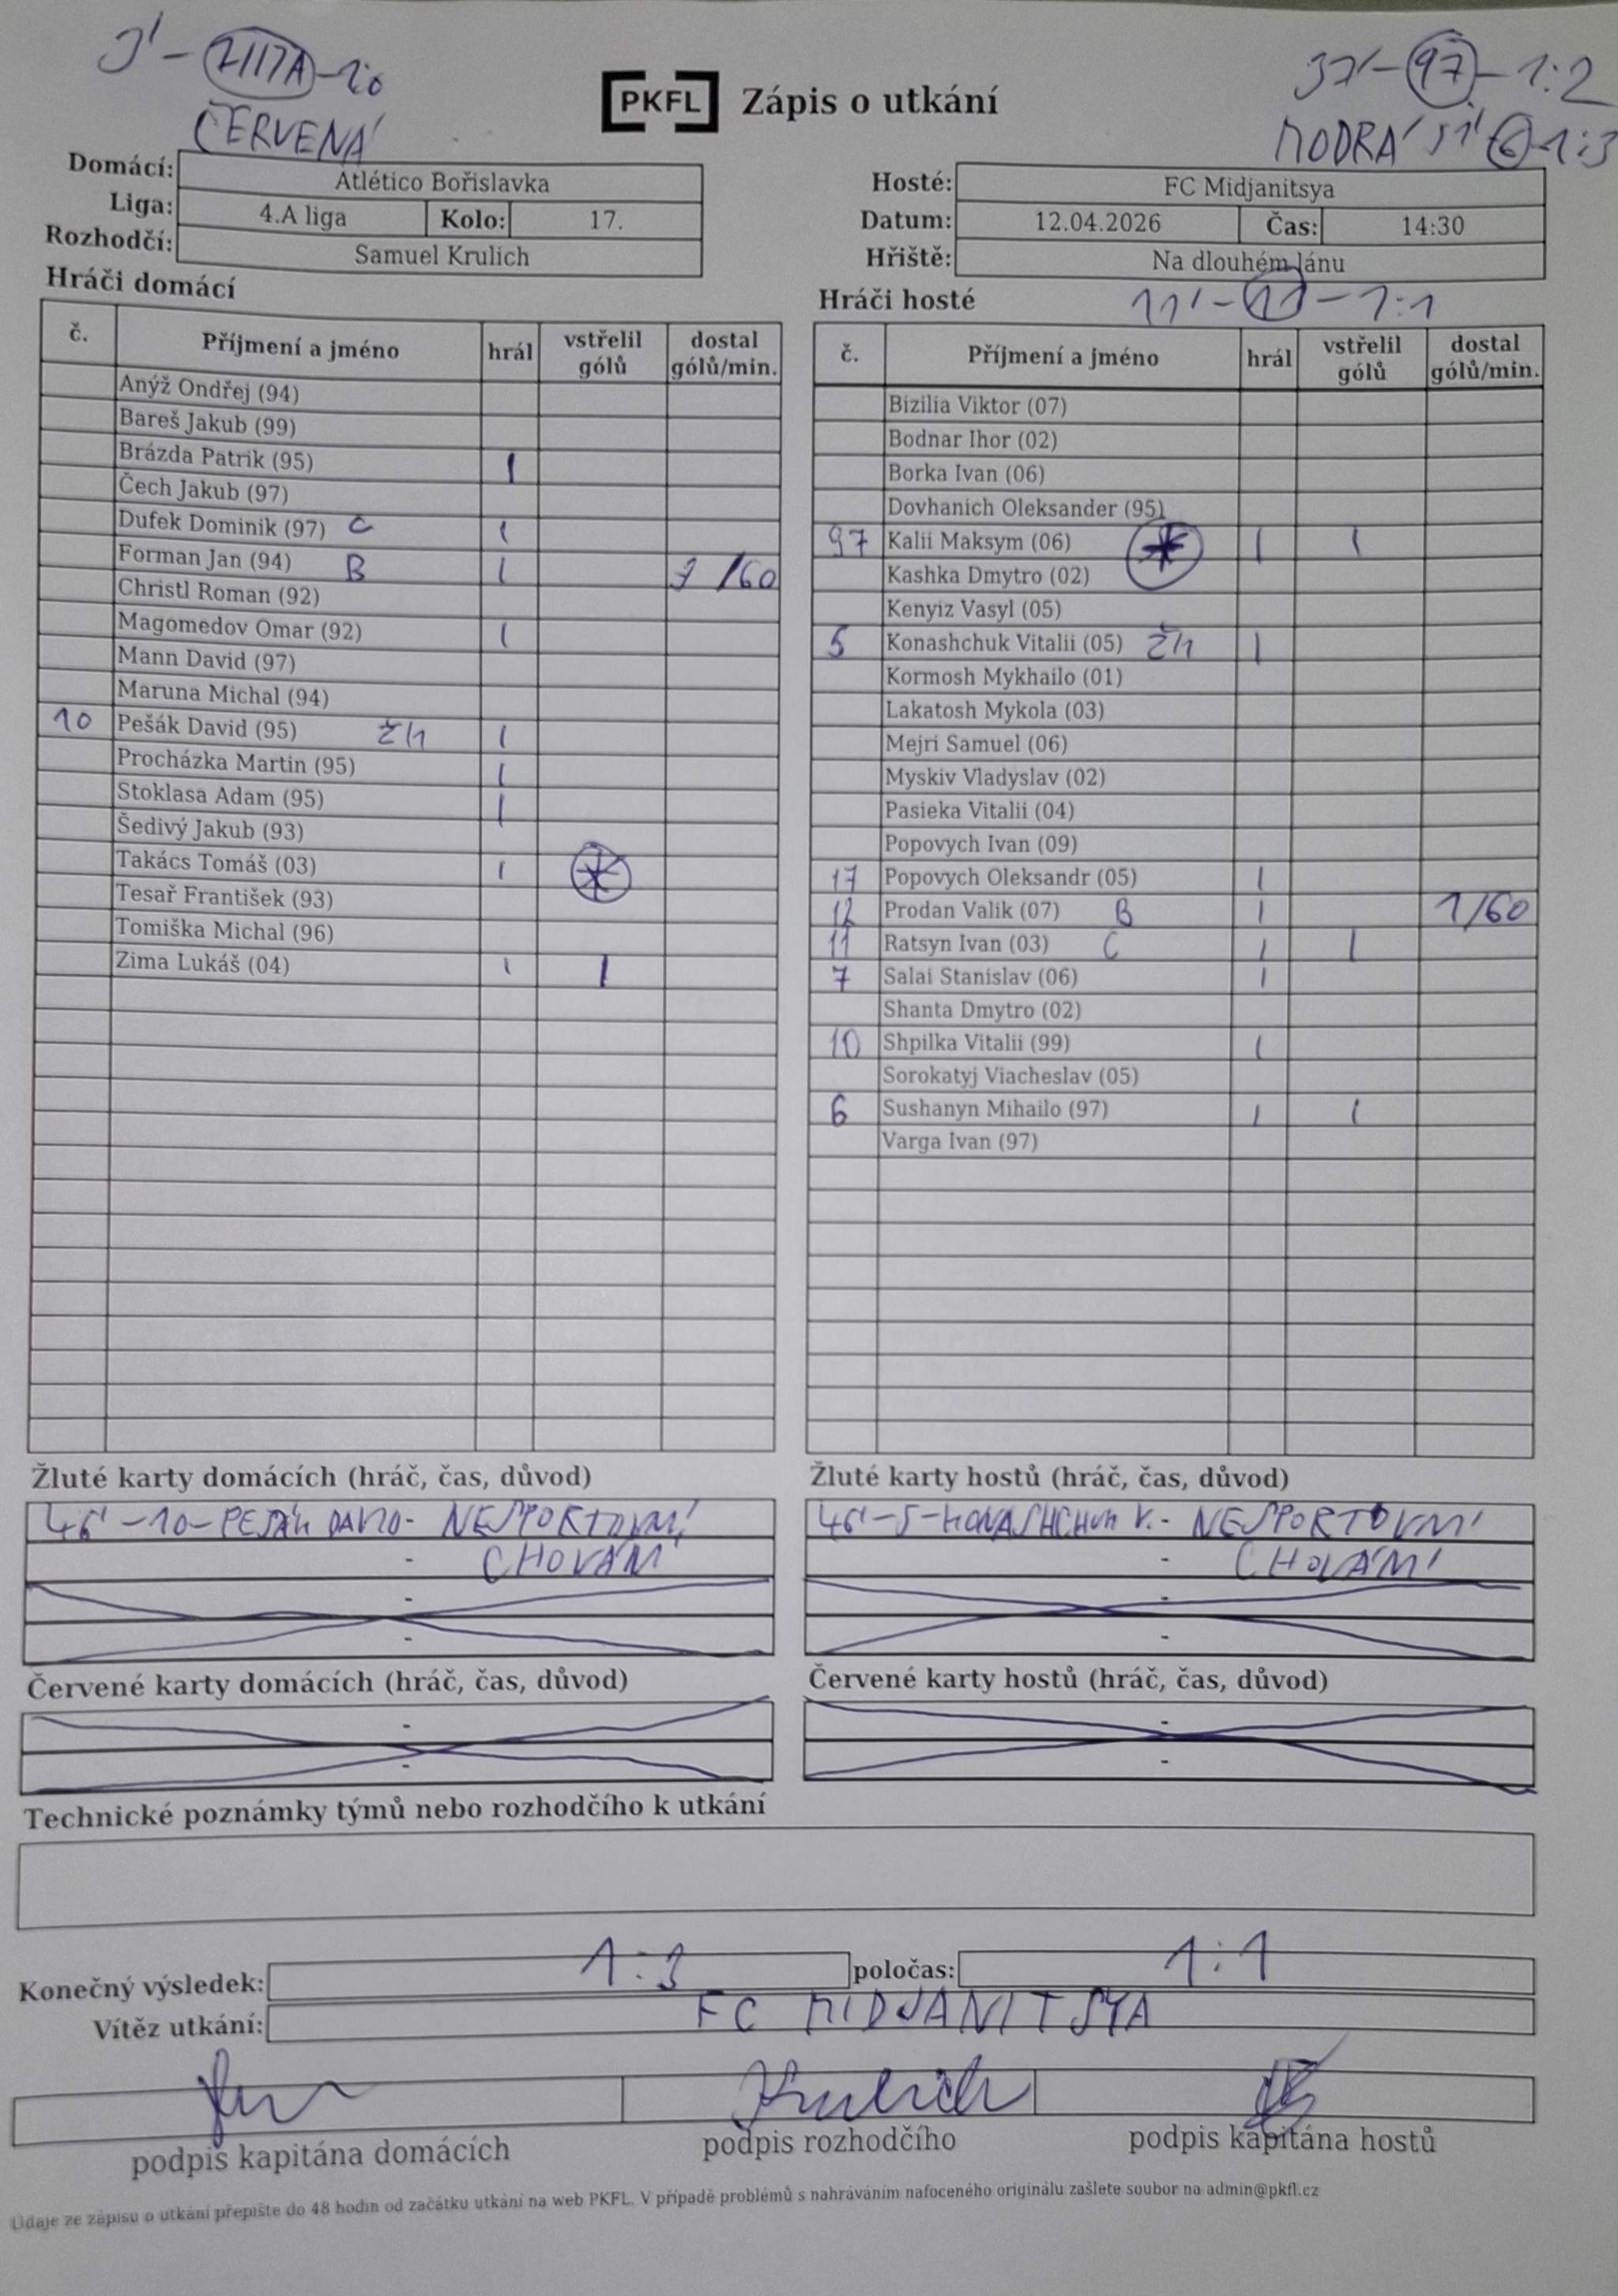 3' - ZIMA - 1:0
ČERVENÁ
PKFL Zápis o utkání
37' - 97 - 1:2
MODRÁ 51' 6 - 1:3
Domácí: Atlético Bořislavka
Liga: 4.A liga Kolo: 17.
Rozhodčí: Samuel Krulich
Hosté: FC Midjanitsya
Datum: 12.04.2026 Čas: 14:30
Hřiště: Na dlouhém lánu
11' - 11 - 1:1
Hráči domácí
č. Příjmení a jméno hrál vstřelil gólů dostal gólů/min.
Anýž Ondřej (94)
Bareš Jakub (99)
Brázda Patrik (95) 1
Čech Jakub (97)
Dufek Dominik (97) C 1
Forman Jan (94) B 1 3/60
Christl Roman (92)
Magomedov Omar (92) 1
Mann David (97)
Maruna Michal (94)
10 Pešák David (95) Ž/1 1
Procházka Martin (95) 1
Stoklasa Adam (95) 1
Šedivý Jakub (93)
Takács Tomáš (03) 1
Tesař František (93)
Tomiška Michal (96)
Zima Lukáš (04) 1 1
Hráči hosté
č. Příjmení a jméno hrál vstřelil gólů dostal gólů/min.
Bizilia Viktor (07)
Bodnar Ihor (02)
Borka Ivan (06)
Dovhanich Oleksander (95)
97 Kalii Maksym (06) 1 1
Kashka Dmytro (02)
Kenyiz Vasyl (05)
5 Konashchuk Vitalii (05) Ž/1 1
Kormosh Mykhailo (01)
Lakatosh Mykola (03)
Mejri Samuel (06)
Myskiv Vladyslav (02)
Pasieka Vitalii (04)
Popovych Ivan (09)
17 Popovych Oleksandr (05) 1
12 Prodan Valik (07) B 1 1/60
11 Ratsyn Ivan (03) C 1 1
7 Salai Stanislav (06) 1
Shanta Dmytro (02)
10 Shpilka Vitalii (99) 1
Sorokatyj Viacheslav (05)
6 Sushanyn Mihailo (97) 1 1
Varga Ivan (97)
Žluté karty domácích (hráč, čas, důvod)
46' - 10 - PEŠÁK DAVID - NESPORTOVNÍ
- CHOVÁNÍ
-
-
Žluté karty hostů (hráč, čas, důvod)
46' - 5 - KONASHCHUK V. - NESPORTOVNÍ
- CHOVÁNÍ
-
-
Červené karty domácích (hráč, čas, důvod)
-
-
Červené karty hostů (hráč, čas, důvod)
-
-
Technické poznámky týmů nebo rozhodčího k utkání
Konečný výsledek: 1:3 poločas: 1:1
Vítěz utkání: FC MIDJANITSYA
Krulich
podpis kapitána domácích podpis rozhodčího podpis kapitána hostů
Údaje ze zápisu o utkání přepište do 48 hodin od začátku utkání na web PKFL. V případě problémů s nahráváním nafoceného originálu zašlete soubor na admin@pkfl.cz